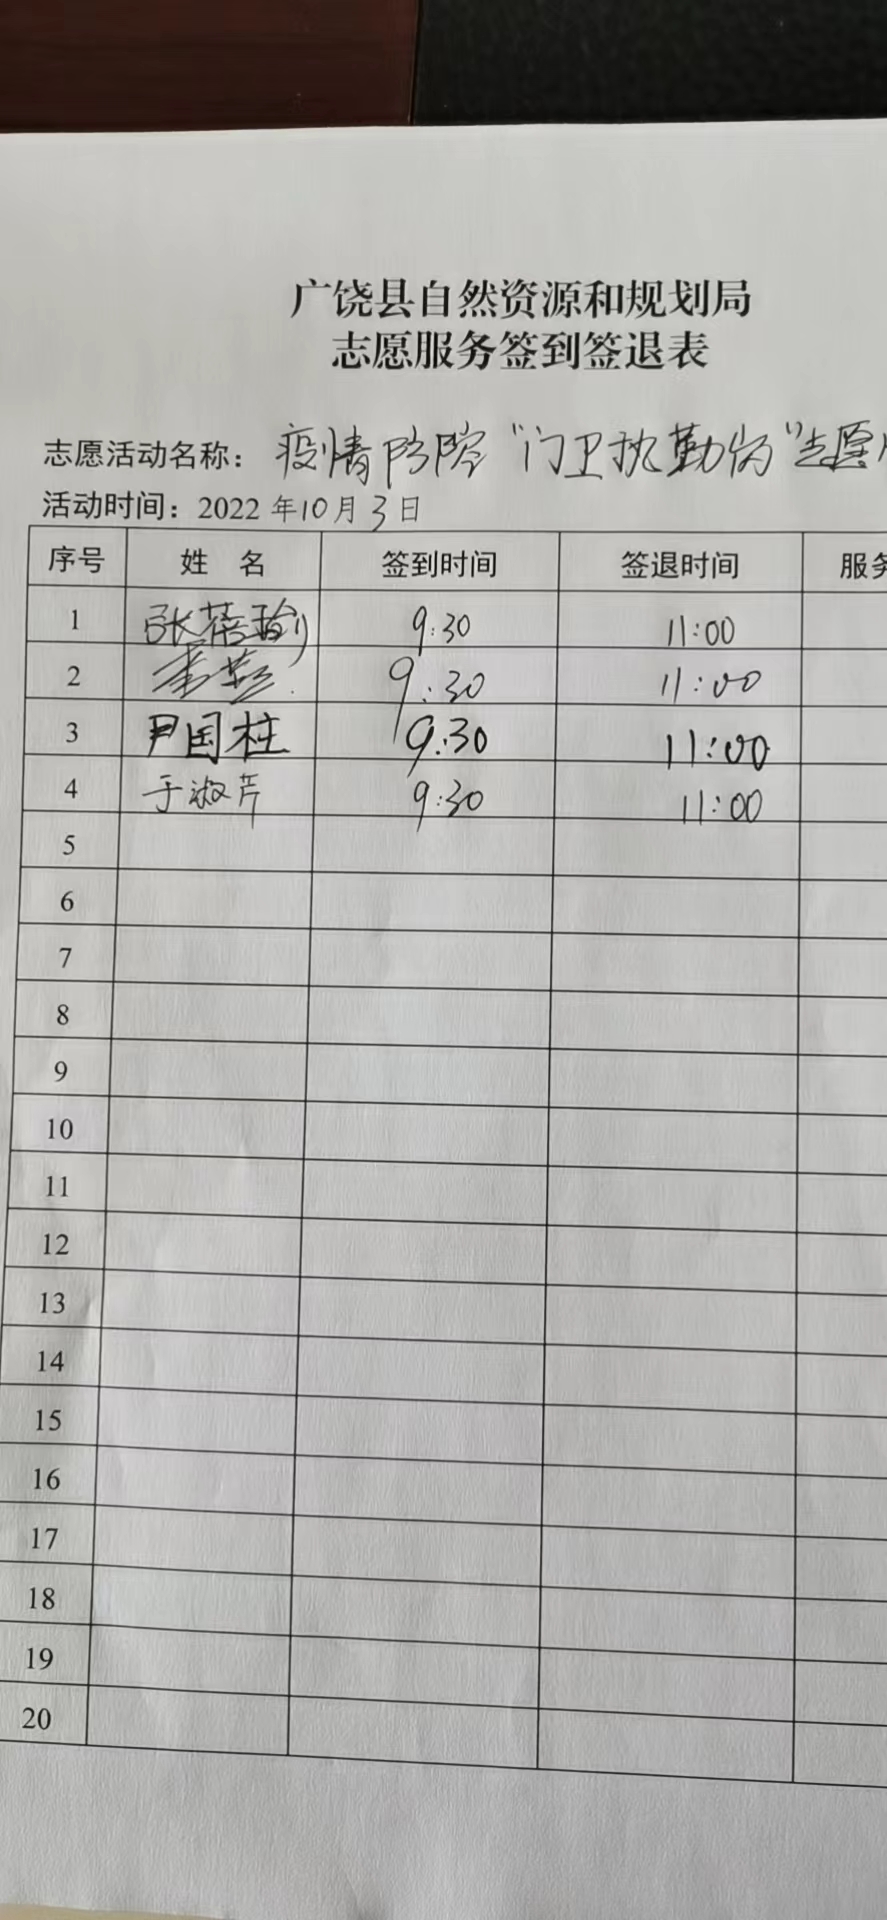 广饶县自然资源和规划局
志愿服务签到签退表
志愿活动名称：疫情防控“门卫执勤岗”志愿
活动时间：2022年10月3日
序号 姓名 签到时间 签退时间 服务
1 张蓓瑜 9:30 11:00
2 9:30 11:00
3 尹国柱 9:30 11:00
4 于淑芹 9:30 11:00
5
6
7
8
9
10
11
12
13
14
15
16
17
18
19
20